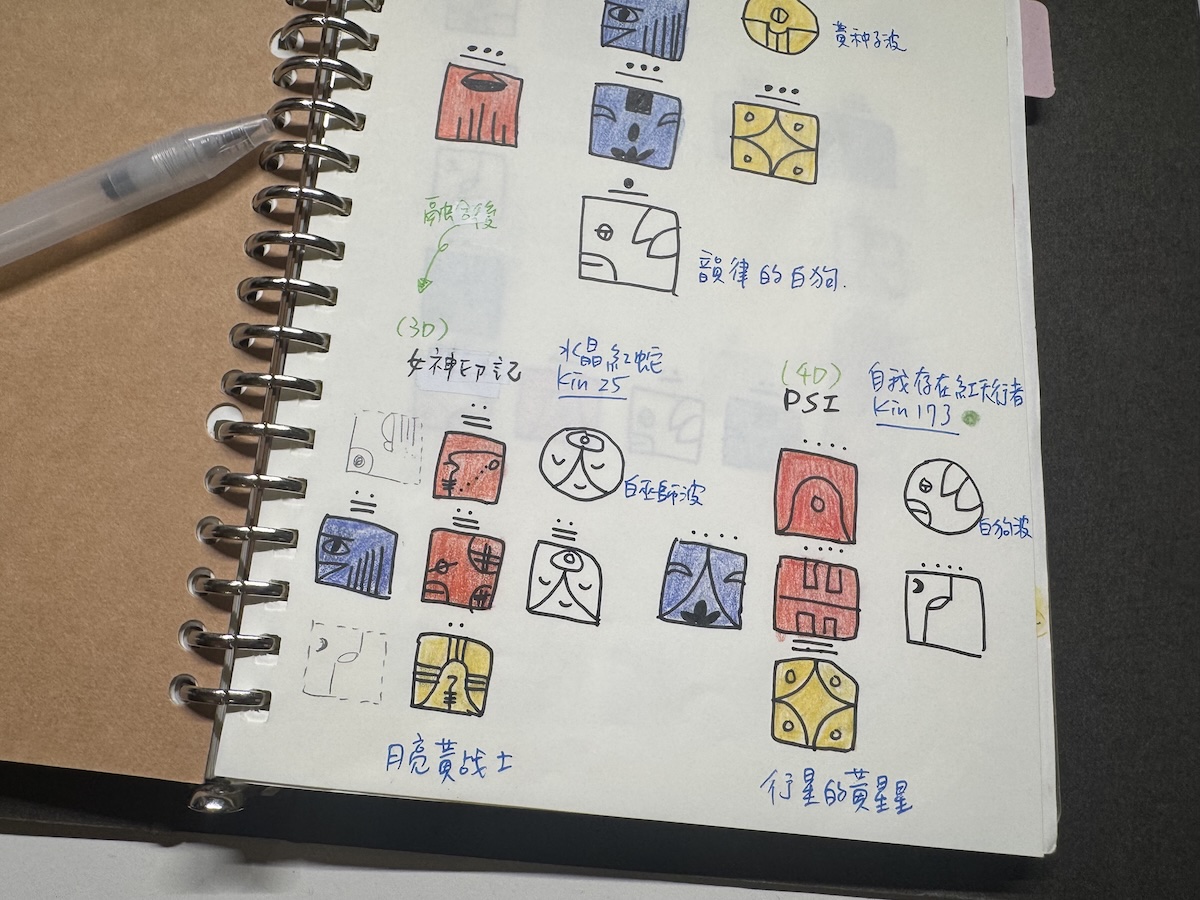 黃种子波
融合後
韻律的白狗.
(3D)
女神印記
水晶紅蛇
Kin 25
(4D)
PSI
自我存在紅天行者
Kin 173
白巫師波
白狗波
月亮黃战士
行星的黃星星